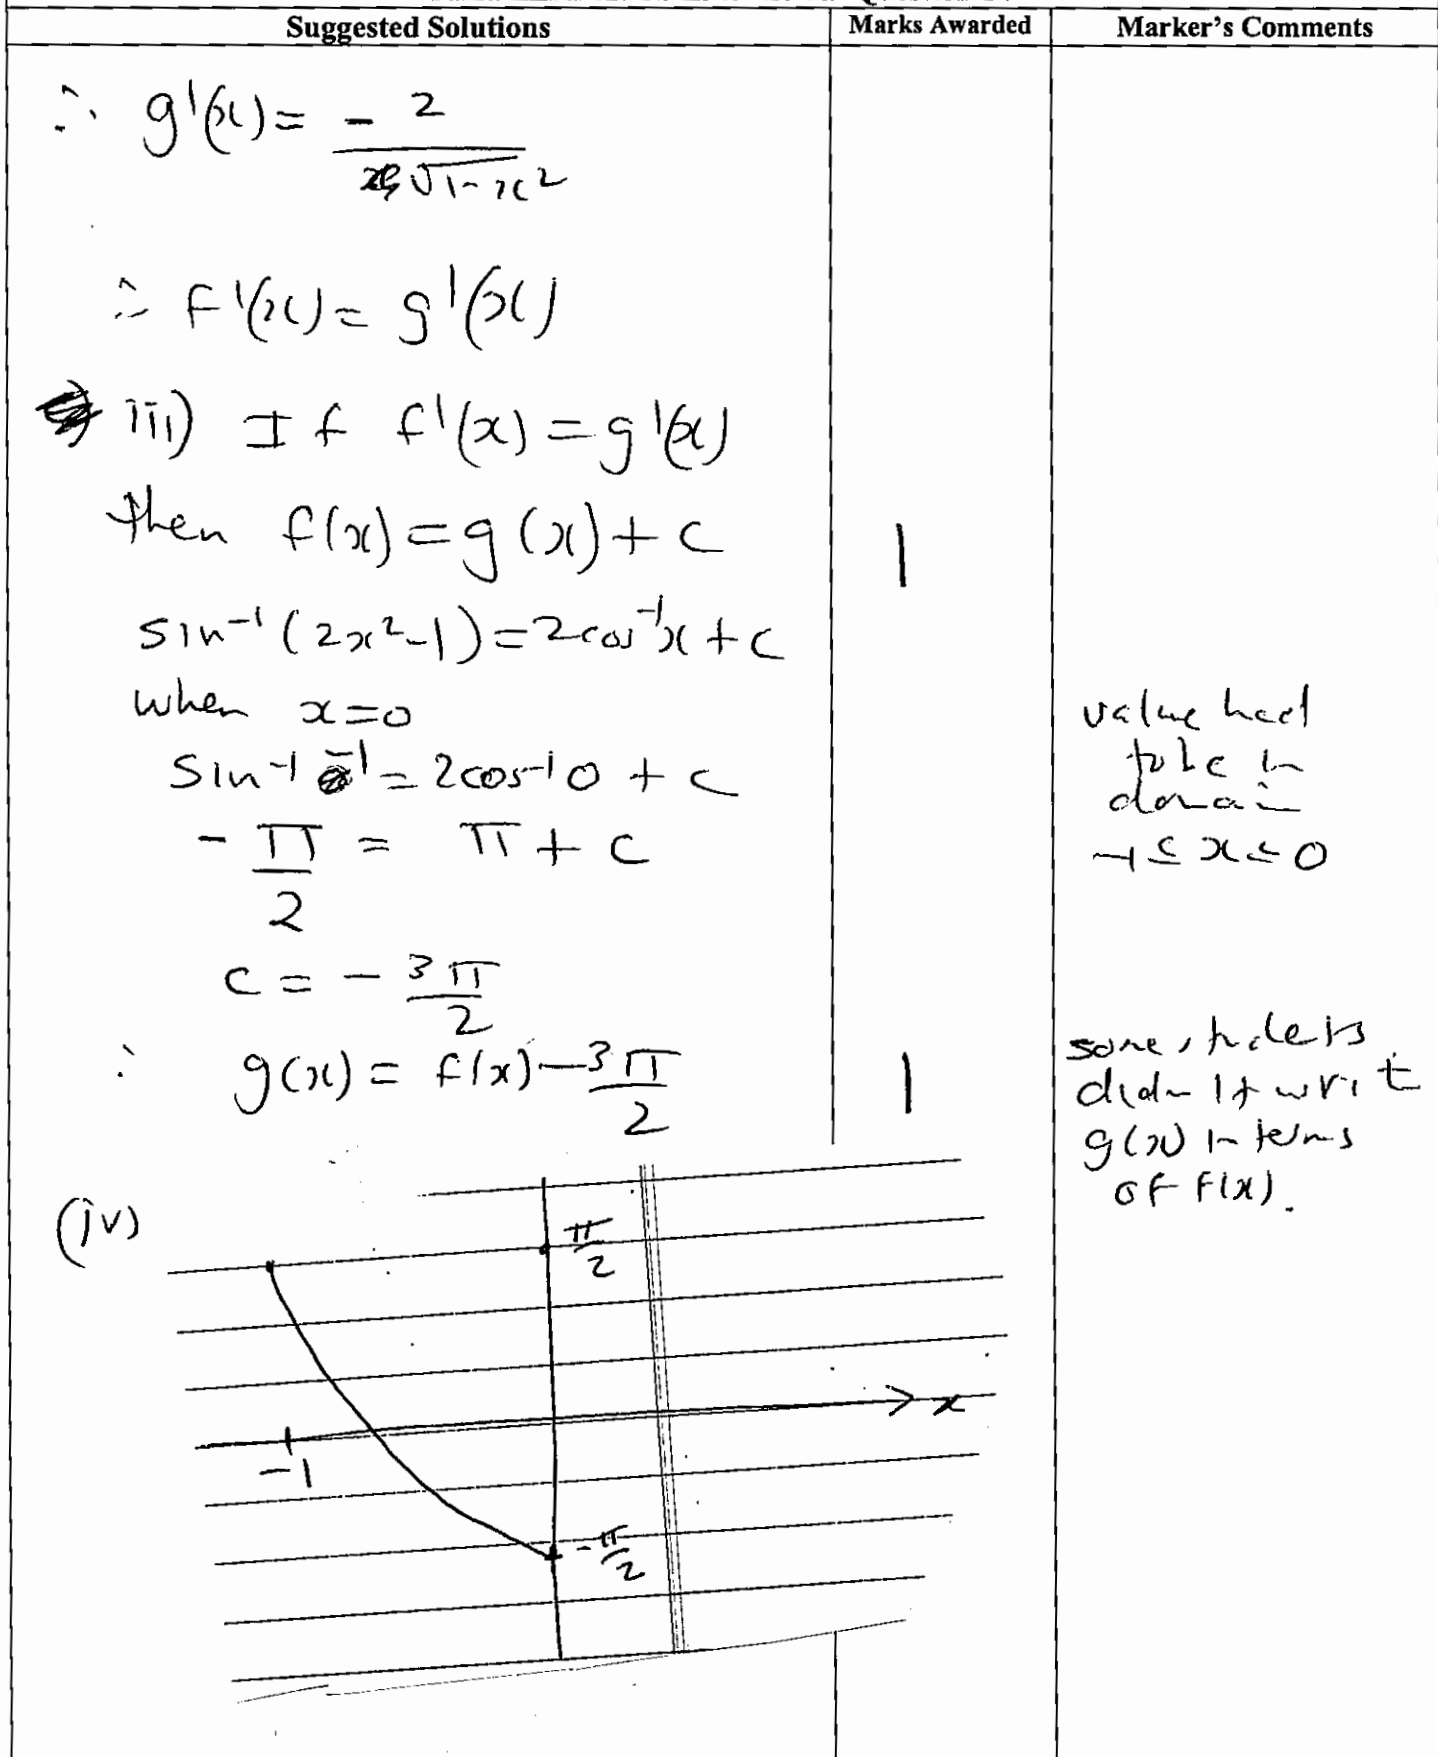 Suggested Solutions
Marks Awarded
Marker's Comments
∴ g'(x) = - 2 / √1-x²
∴ f'(x) = g'(x)
iii) If f'(x) = g'(x)
then f(x) = g(x) + c
1
sin⁻¹(2x²-1) = 2cos⁻¹x + c
when x=0
value had
to be in
domain
-1 ≤ x ≤ 0
sin⁻¹ -1 = 2cos⁻¹0 + c
- π/2 = π + c
c = - 3π/2
∴ g(x) = f(x) - 3π/2
1
some students
didn't writ
g(x) in terms
of f(x).
(iv)
π/2
x
-1
-π/2